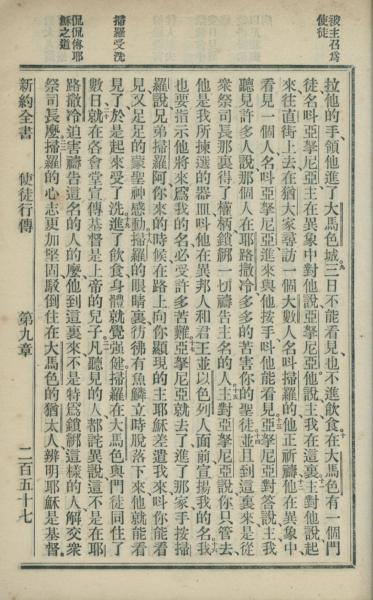 被主召爲
使徒
掃羅受洗
侃侃傳耶
穌之道
拉他的手領他進了大馬色城三日不能看見也不進飲食在大馬色有一個門
徒名呌亞拏尼亞主在異象中對他說亞拏尼亞他說主我在這裏主對他說起
來往直街上去在猶大家尋訪一個大數人名呌掃羅的他正祈禱他在異象中
看見一個人名呌亞拏尼亞進來與他按手呌他能看見亞拏尼亞對答說主我
聽見許多人說那個人在耶路撒冷多多的苦害你的聖徒並且到這裏來是從
衆祭司長那裏得了權柄鎖綁一切禱告主名的人主對亞拏尼亞說你只管去
他是我所揀選的器皿呌他在異邦人和君王並以色列人面前宣揚我的名我
也要指示他將來爲我的名必受許多苦難亞拏尼亞就去了進了那家手按掃
羅說兄弟掃羅阿你來的時候在路上向你顯現的主耶穌差遣我來呌你能看
見又足足的蒙聖神感動掃羅的眼睛裏彷彿有魚鱗立時脫落下來他就能看
見了於是起來受了洗進了飲食身體就覺強健掃羅在大馬色與門徒同住了
數日就在各會堂宣傳基督是上帝的兒子凡聽見的人都詫異說這不是在耶
路撒冷迫害禱告這名的人的麼他到這裏來不是特爲鎖綁這樣的人解交衆
祭司長麼掃羅的心志更加堅固駁倒住在大馬色的猶太人辨明耶穌是基督
新約全書 使徒行傳 第九章 二百五十七